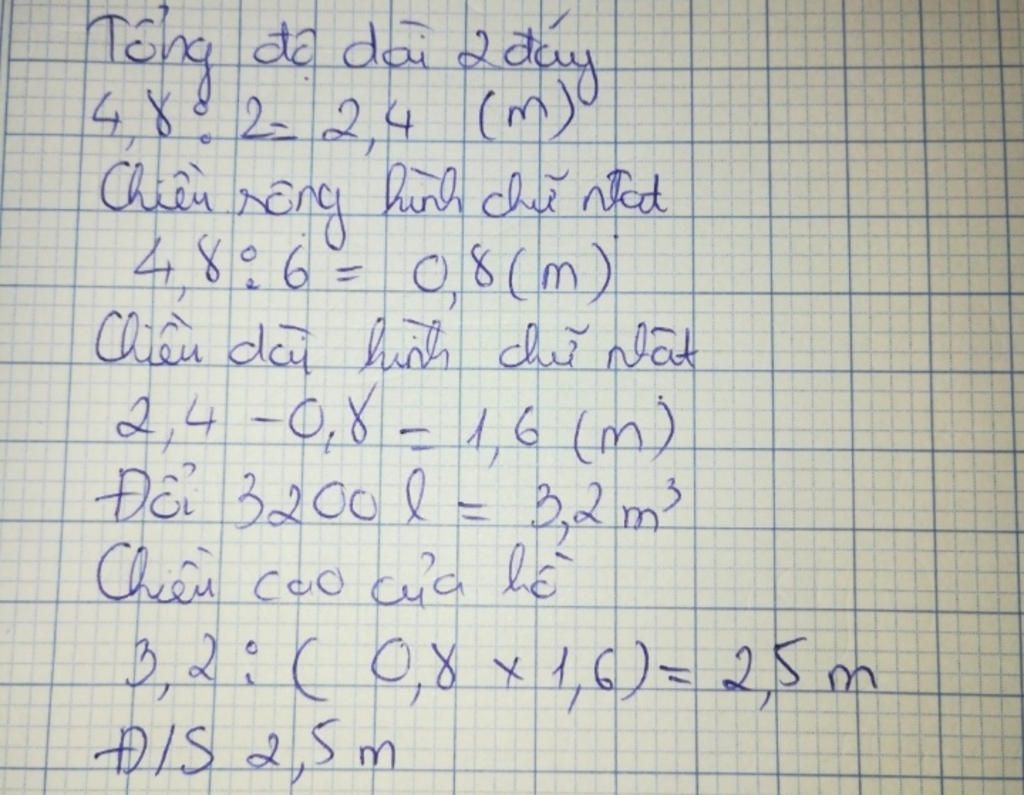 Tổng độ dài 2 đáy
4,8 : 2 = 2,4 (m)
Chiều rộng hình chữ nhật
4,8 : 6 = 0,8 (m)
Chiều dài hình chữ nhật
2,4 - 0,8 = 1,6 (m)
Đổi 3200 l = 3,2 m³
Chiều cao của hồ
3,2 : ( 0,8 x 1,6) = 2,5 m
Đ/S 2,5 m